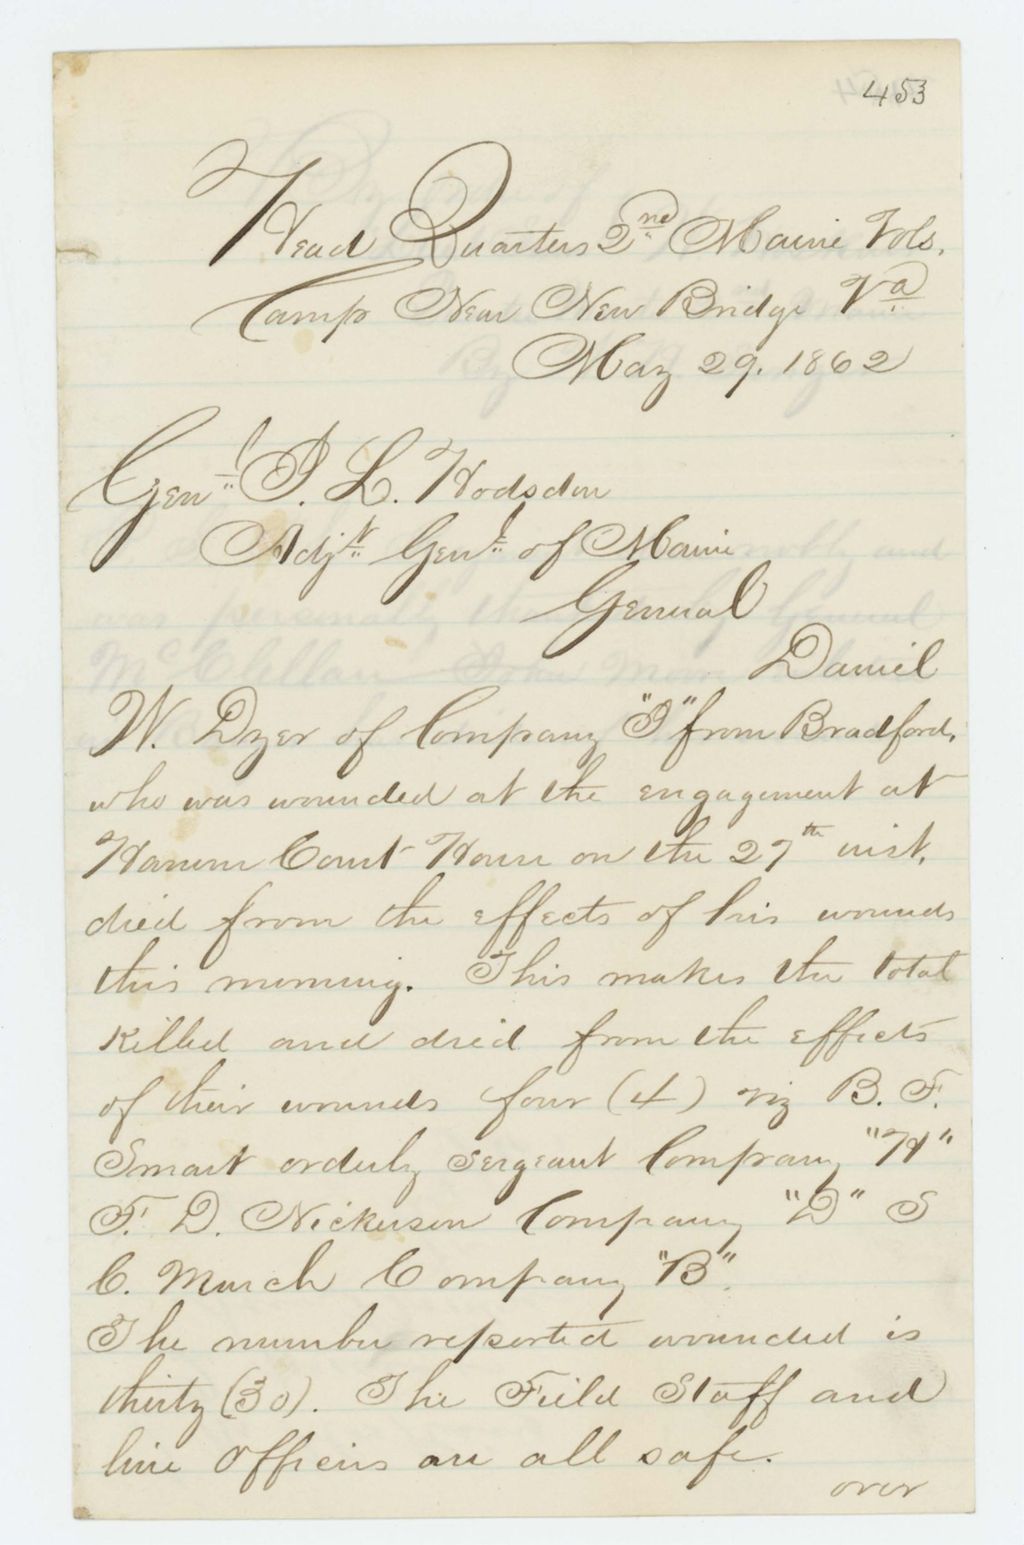 453
Head Quarters 2nd Maine Vols.
Camp Near New Bridge Va
May 29. 1862
Genl J. L. Hodsdon
Adjt Genl of Maine
General
Daniel
W. Dyer of Company "I" from Bradford,
who was wounded at the engagement at
Hanover Court House on the 27th inst.
died from the effects of his wounds
this morning. This makes the total
killed and died from the effects
of their wounds four (4) viz B. F.
Smart orderly sergeant Company "H"
F. D. Nickerson Company "D" S
C. March Company "B".
The number reported wounded is
thirty (30). The Field Staff and
line Officers are all safe.
over